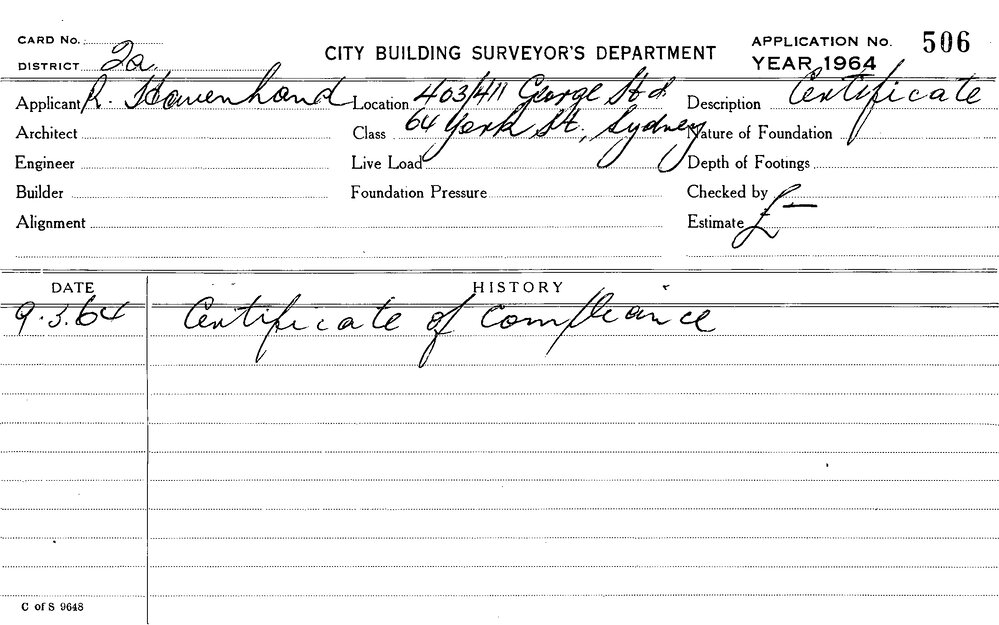 CARD No.
CITY BUILDING SURVEYOR'S DEPARTMENT
APPLICATION No. 506
DISTRICT 2a
YEAR 1964
Applicant R.
Location 403/411 George St &
Description Certificate
Architect
Class 64 York St, Sydney
Nature of Foundation
Engineer
Live Load
Depth of Footings
Builder
Foundation Pressure
Checked by
Alignment
Estimate £ —
DATE HISTORY
9.3.64 Certificate of compliance
C of S 9648